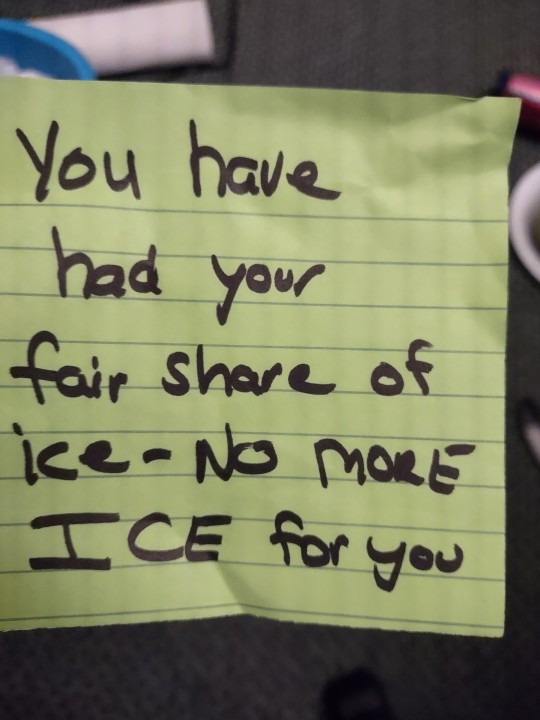 You have
had your
fair share of
ice - NO MORE
ICE for you